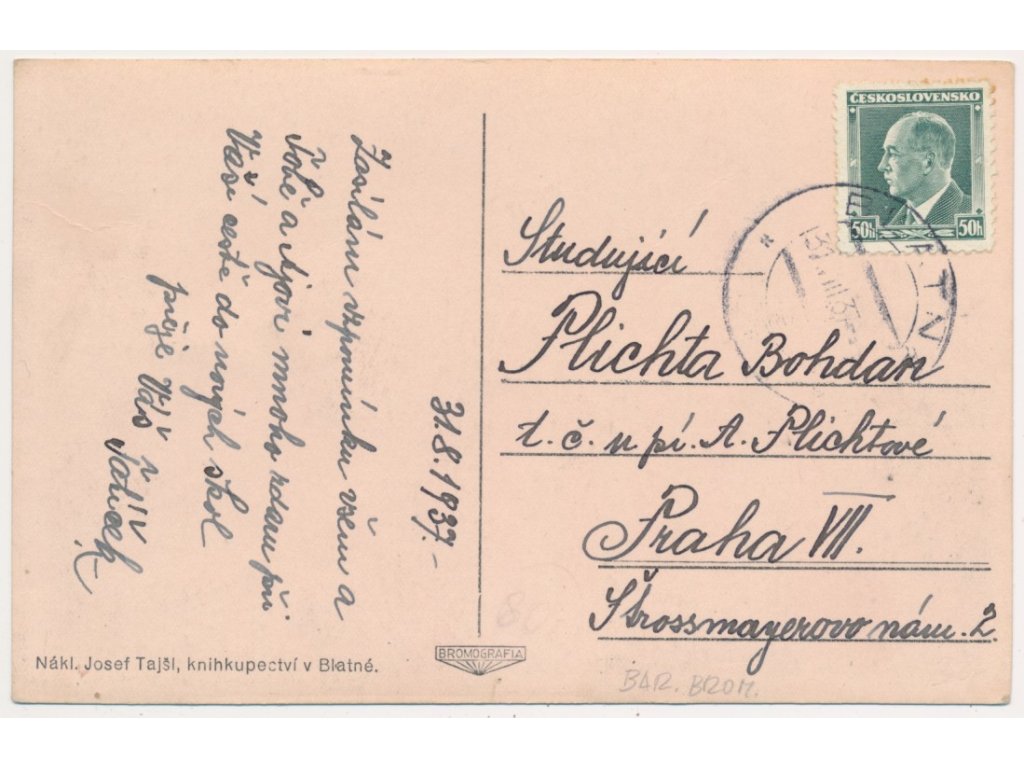 31.8.1937.-
Zasílám vzpomínku všem a
Tobě a mnoho zdaru při
Vaší cestě do nových škol
přeje Váš
ČESKOSLOVENSKO
50h 50h
Studující
Plichta Bohdan
t. č. u pí. A. Plichtové
Praha VII.
Štrossmayerovo nám. 2
Nákl. Josef Tajšl, knihkupectví v Blatné.
BROMOGRAFIA
BAR. BROM.